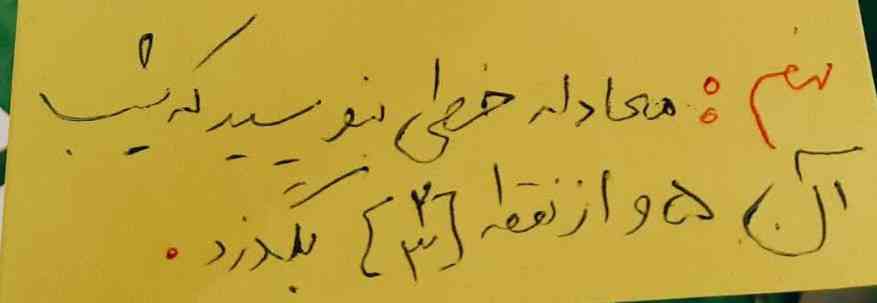 نهم : معادله خطی بنویسید که شیب
آن ۵ و از نقطه [۲ ۳] بگذرد.